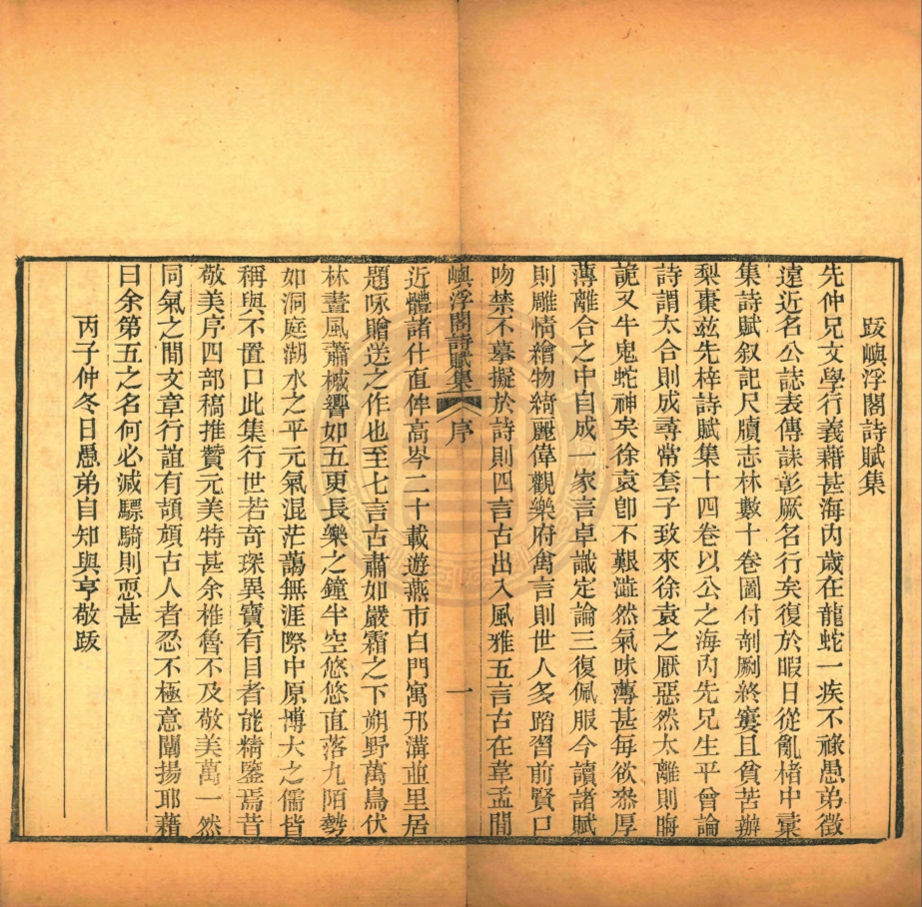 跋嶼浮閣詩賦集
先仲兄文學行義藉甚海內歲在龍蛇一疾不祿愚弟徵
遠近名公誌表傳誄彰厥名行矣復於暇日從亂楮中彙
集詩賦叙記尺牘志林數十卷圖付剞劂終窶且貧苦辦
梨棗茲先梓詩賦集十四卷以公之海內先兄生平曾論
詩謂太合則成尋常套子致來徐袁之厭惡然太離則晦
詭又牛鬼蛇神矣徐袁卽不艱澁然氣味薄甚每欲叅厚
薄離合之中自成一家言卓識定論三復佩服今讀諸賦
則雕情繪物綺麗偉觀樂府萬言則世人多蹈習前賢口
吻禁不摹擬於詩則四言古出入風雅五言古在韋孟間
嶼浮閣詩賦集 序 一
近體諸什直俾高岑二十載遊燕市白門寓邗溝並里居
題咏贈送之作也至七言古肅如嚴霜之下朔野萬鳥伏
林晝風蕭槭響如五更長樂之鐘半空悠悠直落九陌勢
如洞庭湖水之平元氣混茫蕩無涯際中原博大之儒皆
稱與不置口此集行世若奇琛異寶有目者能精鑒焉昔
敬美序四部稿推贊元美特甚余椎魯不及敬美萬一然
同氣之間文章行誼有頡頏古人者忍不極意闡揚耶藉
曰余第五之名何必減驃騎則恧甚
丙子仲冬日愚弟自知與亨敬跋